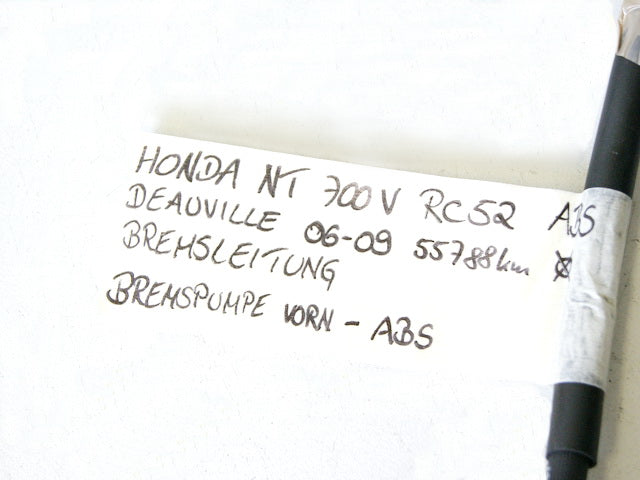 HONDA NT 700V RC52 ABS
DEAUVILLE 06-09 55788km
BREMSLEITUNG
BREMSPUMPE VORN - ABS